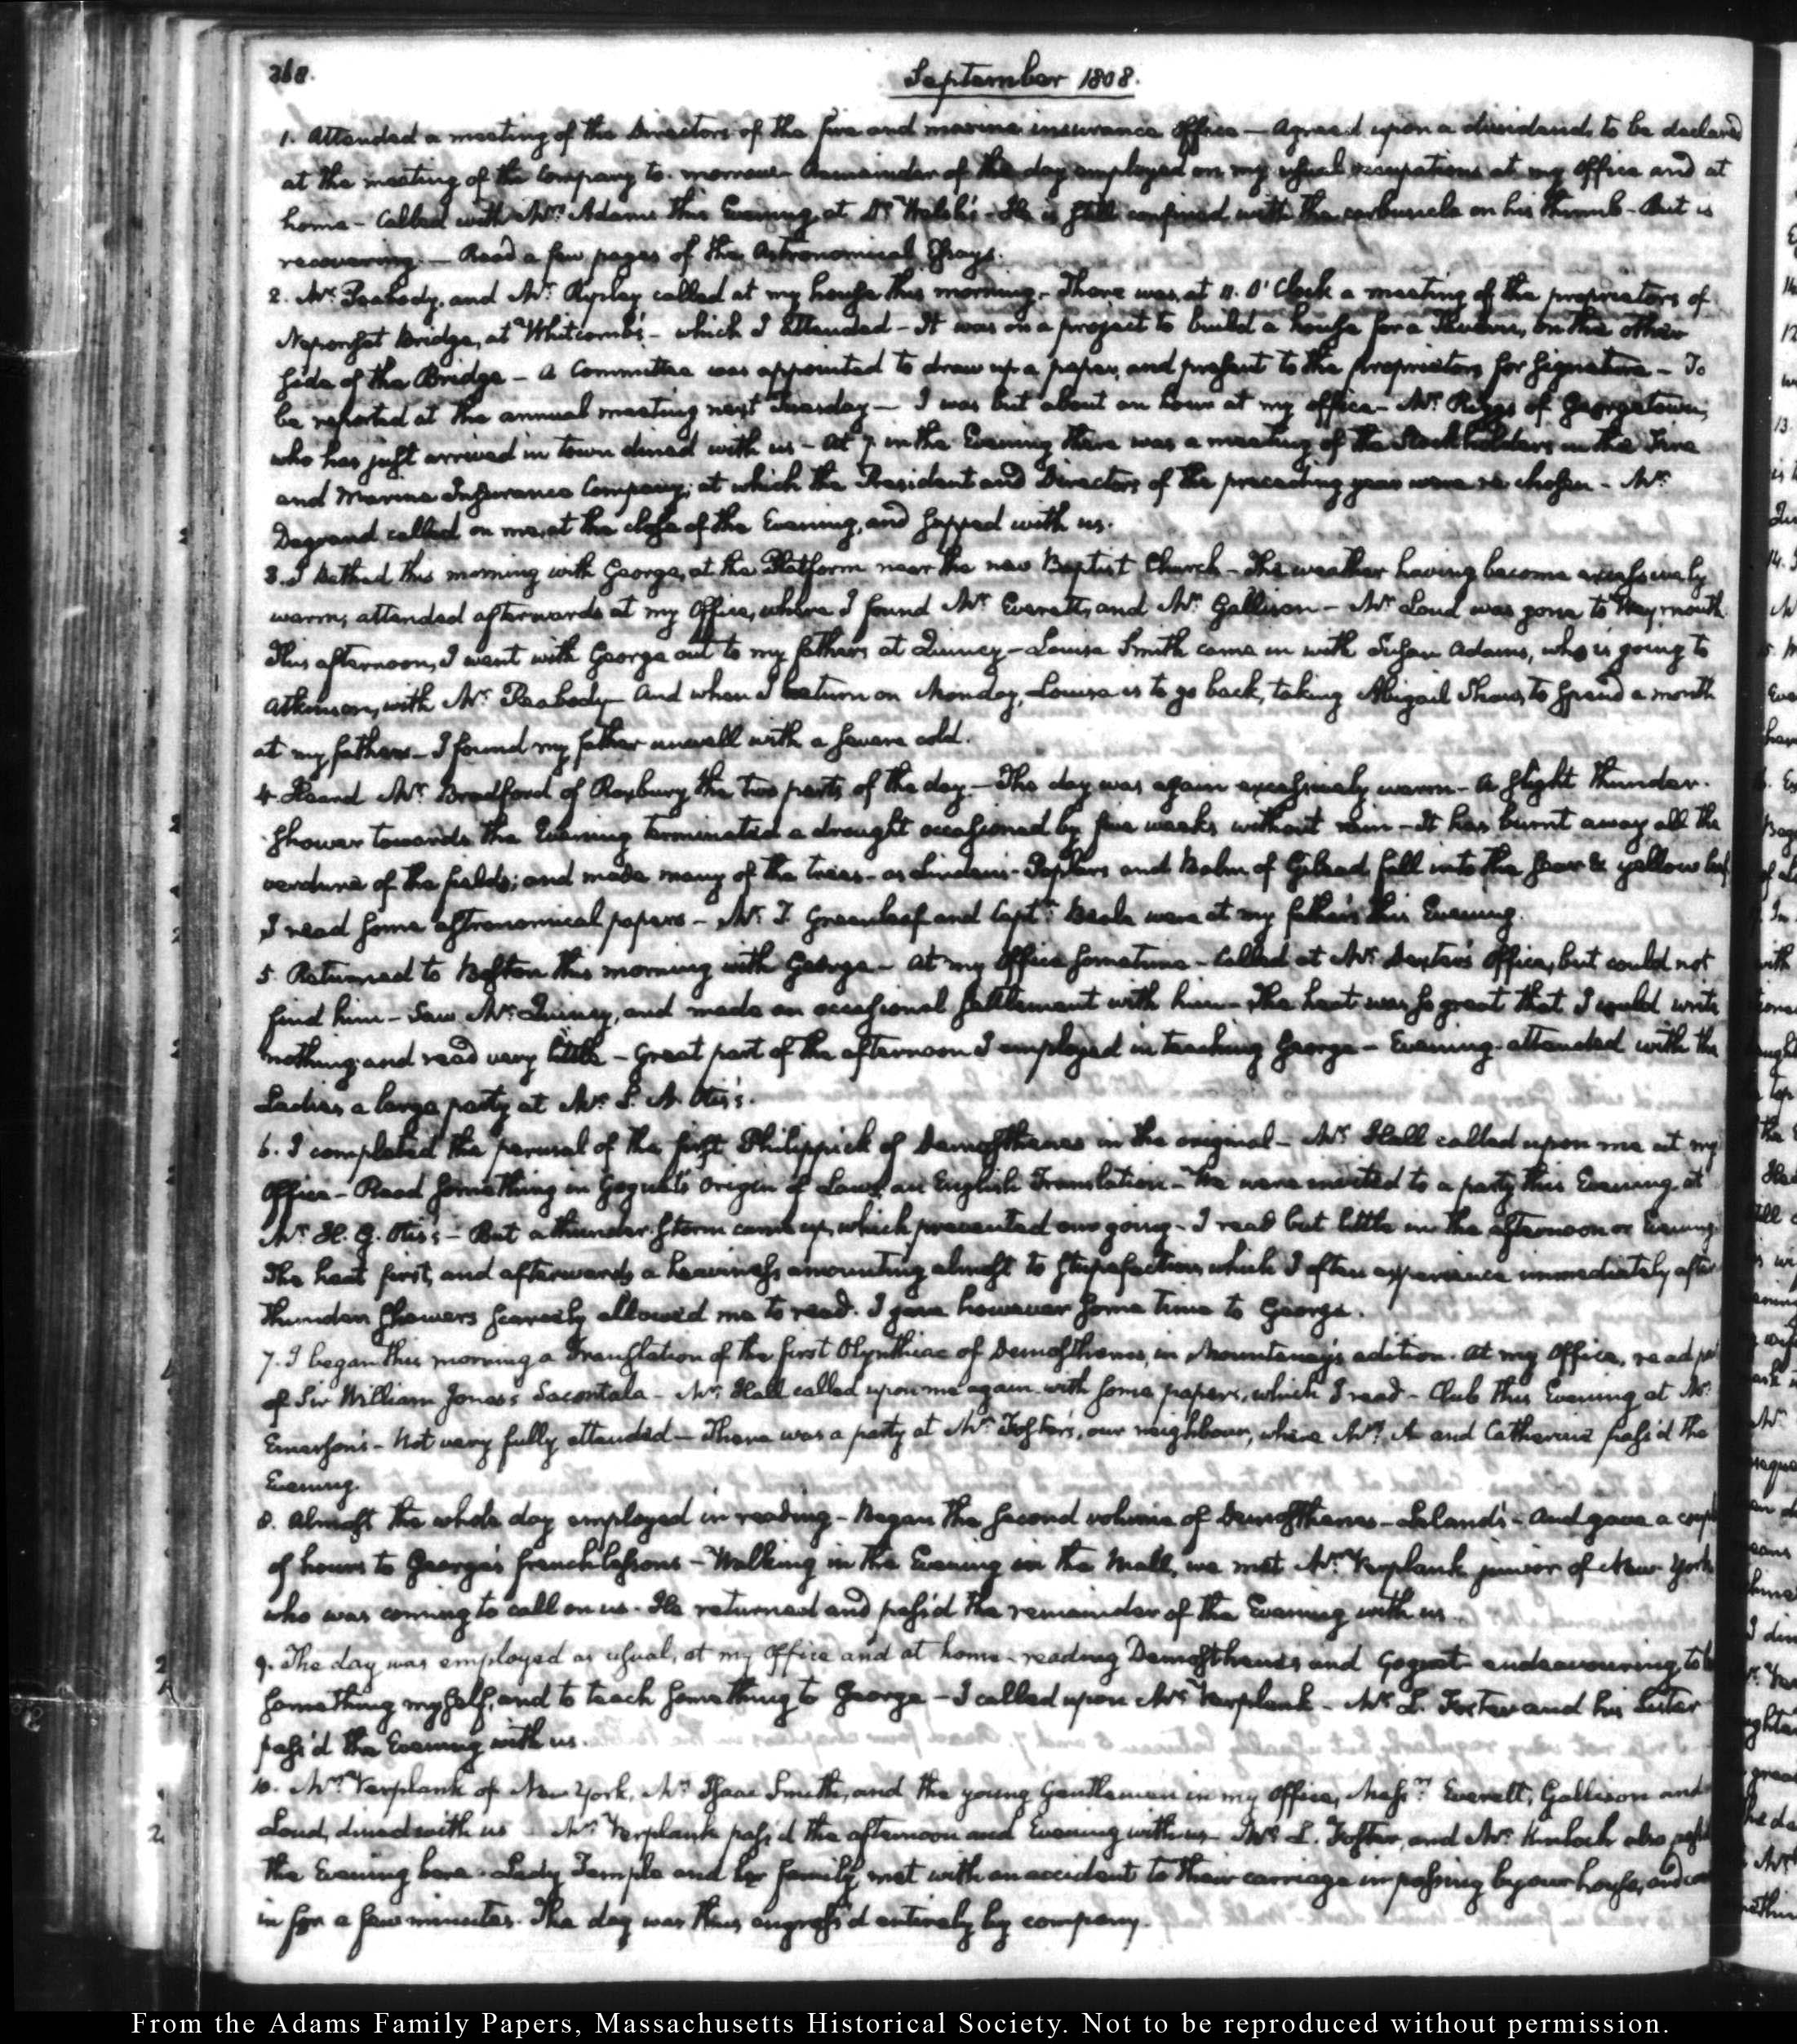 368.
September 1808.
1. Attended a meeting of the Directors of the fire and marine insurance Office — Agreed upon a dividend, to be declared
at the meeting of the Company to-morrow. Remainder of the day employed on my usual occupations at my Office and at
home — Called with Mrs. Adams this Evening at Dr. Welsh's — He is still confined with the carbuncle on his thumb — But is
recovering. — Read a few pages of the Astronomical Essays.
2. Mr. Peabody, and Mr. Ripley called at my house this morning — There was, at 11. O'Clock a meeting of the proprietors of
Neponset Bridge, at Whitcomb's — which I attended — It was on a project to build a house for a Tavern, on the other
side of the Bridge — A Committee was appointed to draw up a paper, and present to the proprietors for signature — To
be reported at the annual meeting next Tuesday — I was but about an hour at my office — Mr. Riggs of Georgetown,
who has just arrived in town dined with us — At 7 in the Evening there was a meeting of the Stockholders in the Fire
and Marine Insurance Company; at which the President and Directors of the preceding year were re-chosen — Mr.
Degrand called on me, at the close of the Evening, and supped with us.
3. I bathed this morning with George, at the Platform near the new Baptist Church — The weather having become excessively
warm; attended afterwards at my Office, where I found Mr. Everett, and Mr. Gallison — Mr. Loud was gone to Weymouth
This afternoon, I went with George out to my father's at Quincy — Louisa Smith came in with Susan Adams, who is going to
Atkinson, with Mr. Peabody And when I return on Monday, Louisa is to go back, taking Abigail Shaw, to spend a month
at my fathers — I found my father unwell with a severe cold.
4. Heard Mr. Bradford of Roxbury the two parts of the day — The day was again excessively warm — A slight thunder-
shower towards the Evening terminated a drought occasioned by five weeks without rain — It has burnt away all the
verdure of the fields; and made many of the trees — as Lindens — Poplars and Balm of Gilead, fall into the sear & yellow leaf
I read some astronomical papers — Mr. T. Greenleaf and Captn. Beale were at my father's this Evening.
5. Returned to Boston this morning with George — At my Office sometime — Called at Mr. Dexter's Office, but could not
find him — Saw Mr. Quincy, and made an occasional settlement with him — The heat was so great that I could write
nothing and read very little — Great part of the afternoon I employed in teaching George — Evening attended with the
Ladies a large party at Mr. S. A. Otis's.
6. I completed the perusal of the first Philippick of Demosthenes in the original — Mr. Hall called upon me at my
Office — Read something in Goguet's Origin of Laws, an English Translation — We were invited to a party this Evening at
Mr. H. G. Otis's — But a thunder-storm came up, which prevented our going — I read but little in the afternoon or Evening
The heat first, and afterwards a heaviness amounting almost to stupefaction, which I often experience immediately after
thunder showers scarcely allowed me to read. I gave however some time to George.
7. I began this morning a Translation of the first Olynthiac of Demosthenes, in Mountenay's edition. At my Office, read
of Sir William Jones's Sacontala — Mr. Hall called upon me again with some papers, which I read — Club this Evening at Mr.
Emerson's — Not very fully attended — There was a party at Mr. Foster's, our neighbour, where Mrs. A and Catherine pass'd the
Evening.
8. Almost the whole day employed in reading — Began the second volume of Demosthenes — Leland's — And gave a
of hours to George's french lessons — Walking in the Evening in the Mall, we met Mr. Verplank junior of New York
who was coming to call on us. He returned and pass'd the remainder of the Evening with us.
9. The day was employed as usual, at my Office and at home — reading Demosthenes and Goguet — endeavouring to
something myself, and to teach something to George — I called upon Mr. Verplank — Mr. L. Foster and his Sister
pass'd the Evening with us.
10. Mr. Verplank of New York, Mr. Isaac Smith, and the young Gentlemen in my Office, Messrs. Everett, Gallison and
Loud, dined with us. Mr. Verplank pass'd the afternoon and Evening with us — Mr. L. Foster, and Mr. Kinloch also
the Evening here. Lady Temple and her family, met with an accident to their carriage in passing by our house, and
in for a few minutes. The day was thus engross'd entirely by company.
From the Adams Family Papers, Massachusetts Historical Society. Not to be reproduced without permission.